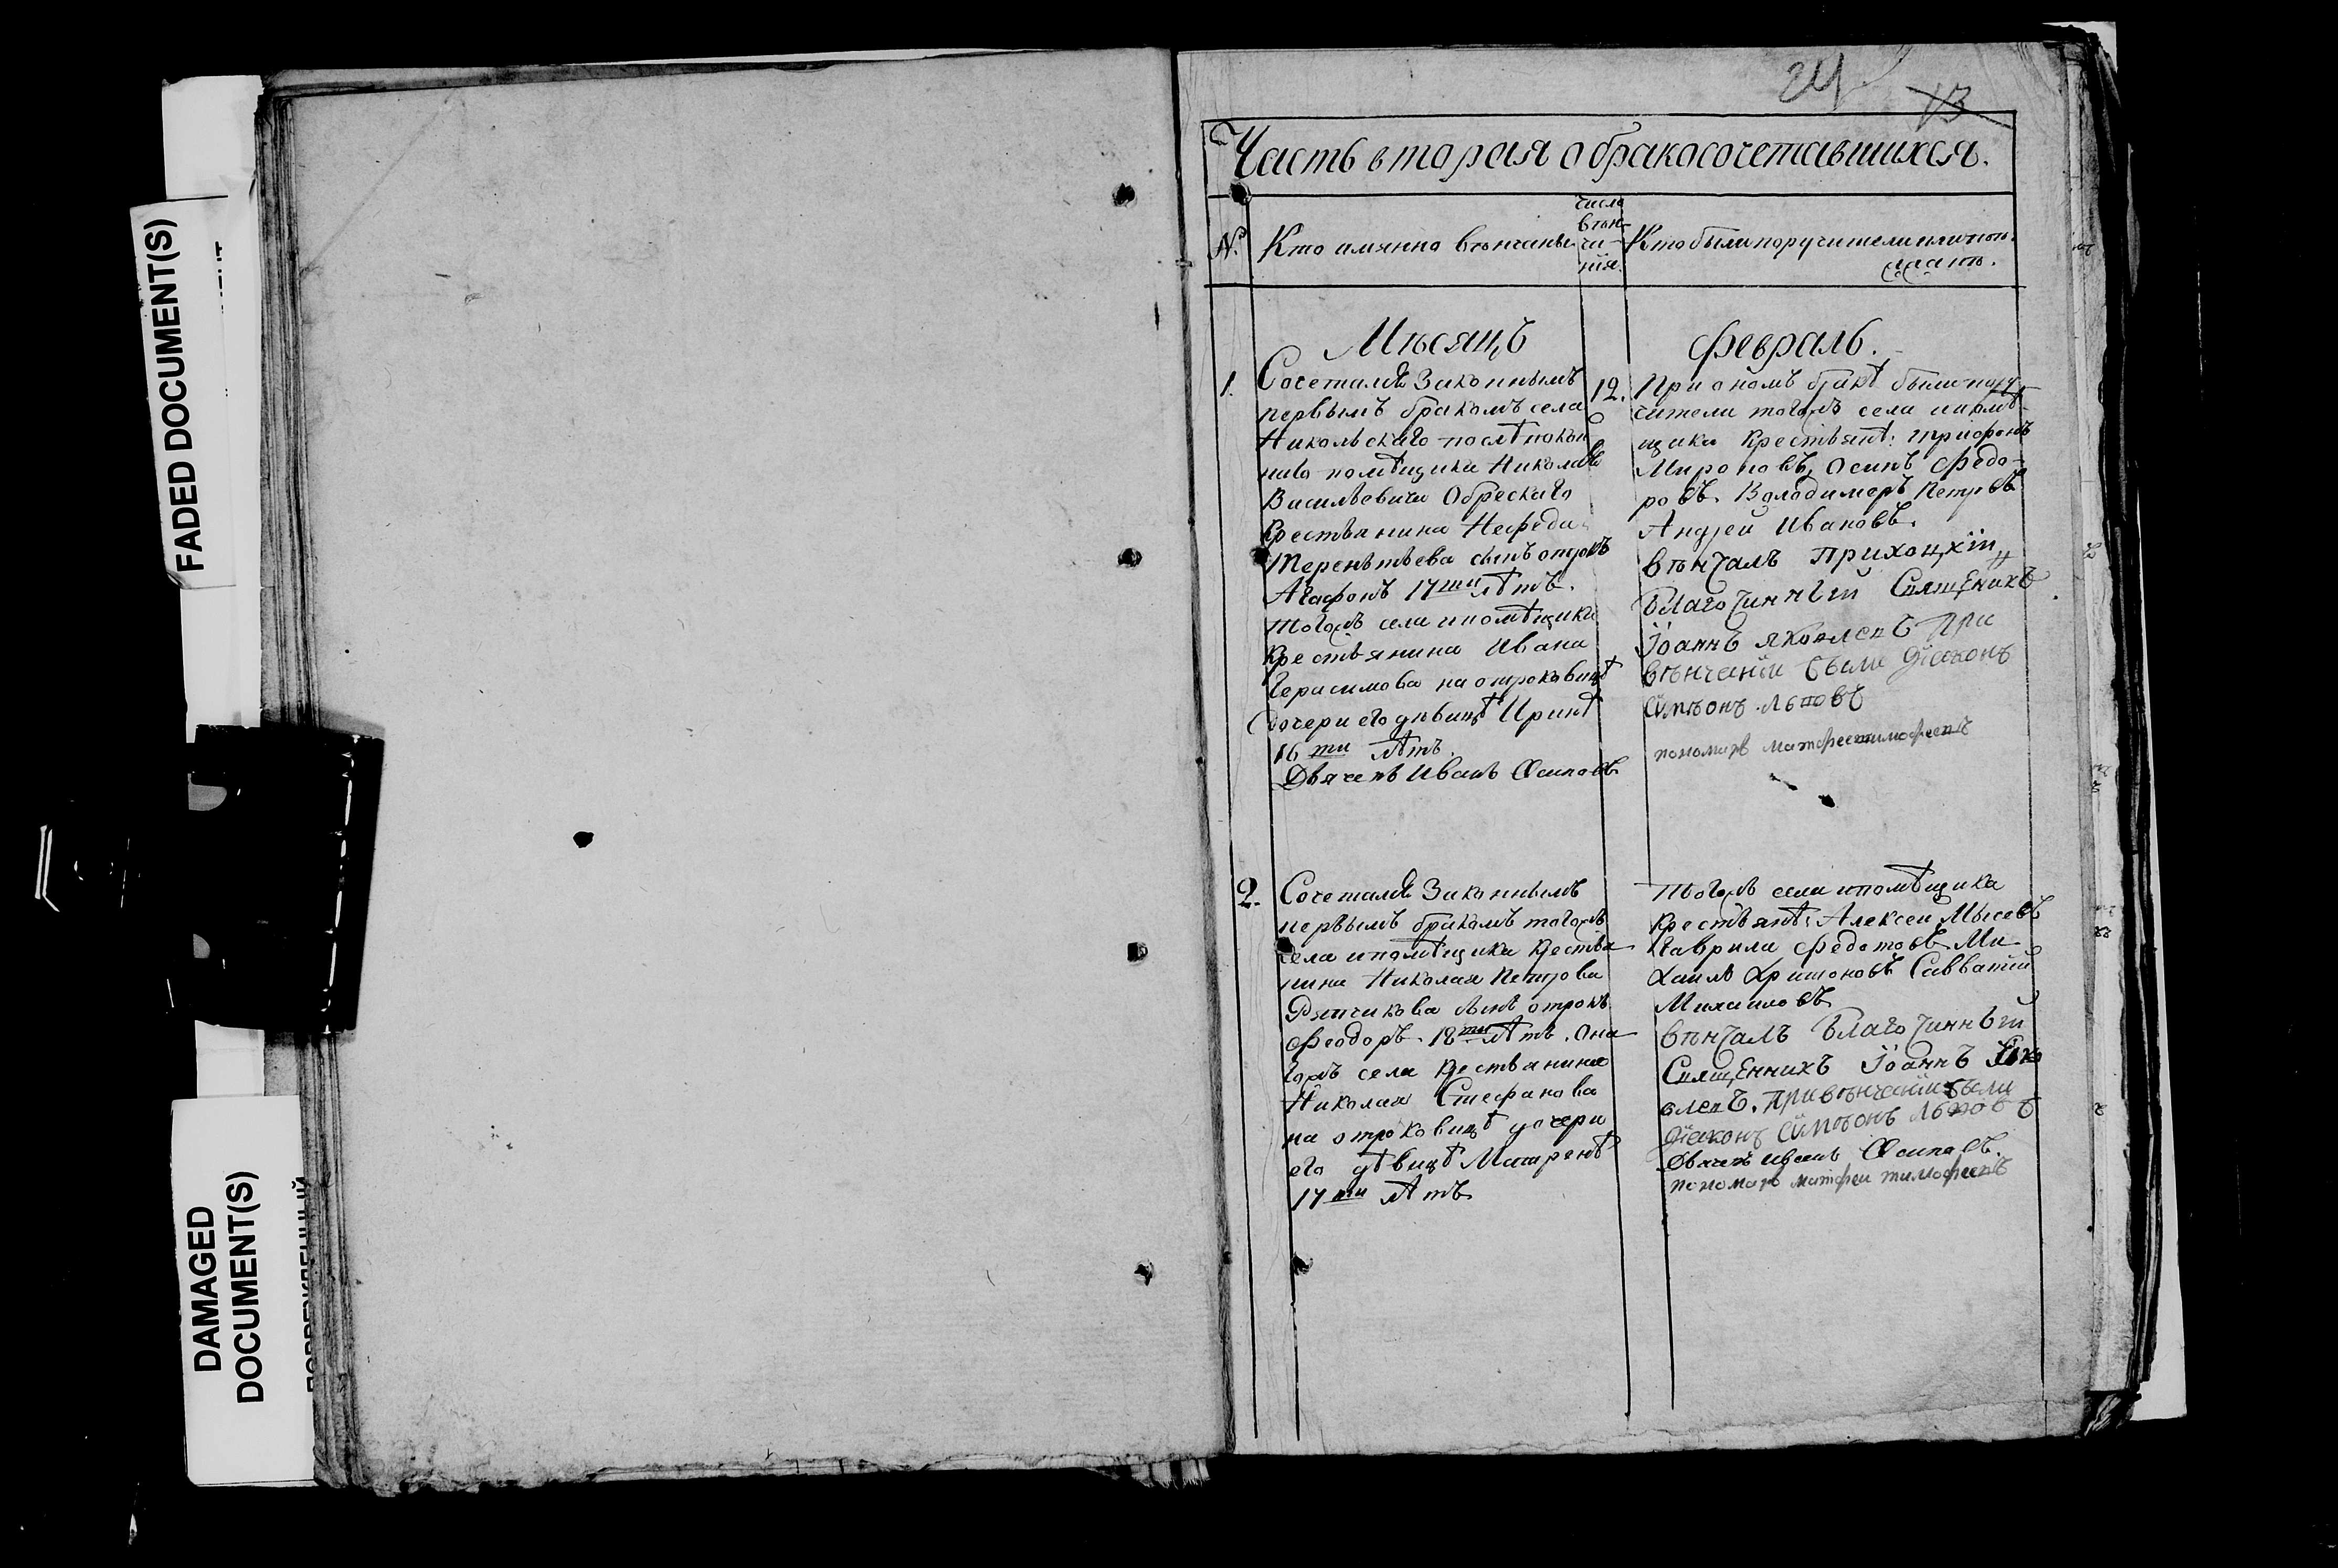 FADED DOCUMENT(S)
DAMAGED
DOCUMENT(S)
24
13
Часть вторая о бракосочетавшихся.
№
Кто имянно венчаны
число
вѣн-
ча-
нія.
Кто были поручители
Мѣсяцъ
Февраль.
1.
Сочетался Законнымъ
первымъ бракомъ села
Никольскаго после покой
наго помѣщика Николая
Васильевича Обрескаго
Крестьянина Нефеда
Терентьева сынъ отрокъ
Агафонъ 17ти лѣтъ.
тогожъ села и помѣщика
Крестьянина Ивана
Герасимова на отроковицѣ
дочери его дѣвицѣ Иринѣ
16ти лѣтъ.
Дьячекъ Иванъ Осиповъ
12.
При ономъ бракѣ были пору
чители тогожъ села и помѣ-
щика Крестьянѣ: Трифонъ
Мироновъ, Осипъ Федо-
ровъ. Володимеръ Петровъ
Андрей Ивановъ.
вѣнчалъ Прихоцкій
Благочинный Сплщеникъ
Іоаннъ Яковлевъ При
вѣнчаніи были Діаконъ
Сѵмѣонъ Львовъ
пономарь матфей тимофеевъ
2.
Сочетался Законнымъ
первымъ бракомъ тогожъ
села и помѣщика Крестья
нина Николая Петрова
сынъ отрокъ
Феодоръ. 18ти лѣтъ. Она
гожъ села Крестьянина
Николая Стефанова
на отроковицѣ дочери
его дѣвицѣ Матренѣ
17ти лѣтъ
Тогожъ села и помѣщика
Крестьянѣ: Алексеи
Гаврила Федотовъ Ми
хаилъ Савватий
Михаиловъ
вѣнчалъ Благочинный
Сплщенникъ Іоаннъ Яко
влевъ. При вѣнчаніи были
Діаконъ Сѵмѣонъ Львовъ
Дьячекъ Иванъ Осиповъ.
пономарь матфеи тимофеевъ